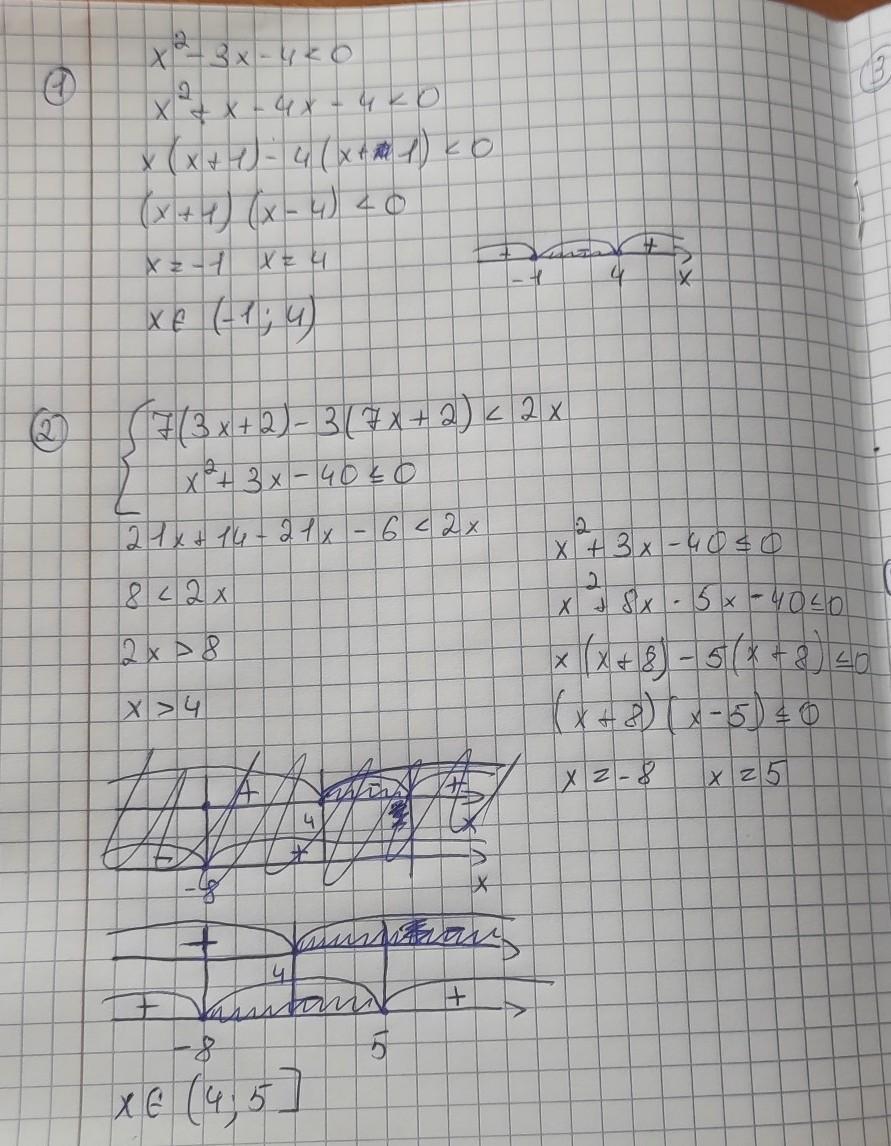 ① x² - 3x - 4 < 0
x² + x - 4x - 4 < 0
x(x+1) - 4(x+1) < 0
(x+1)(x-4) < 0
x = -1 x = 4
+ - +
-1 4 x
x ∈ (-1; 4)
② { 7(3x+2) - 3(7x+2) < 2x
x² + 3x - 40 ≤ 0
21x + 14 - 21x - 6 < 2x
8 < 2x
2x > 8
x > 4
x² + 3x - 40 ≤ 0
x² + 8x - 5x - 40 ≤ 0
x(x+8) - 5(x+8) ≤ 0
(x+8)(x-5) ≤ 0
x = -8 x = 5
+ - +
4 x
- +
-8 x
+
4
+ +
-8 5
x ∈ (4; 5]
③